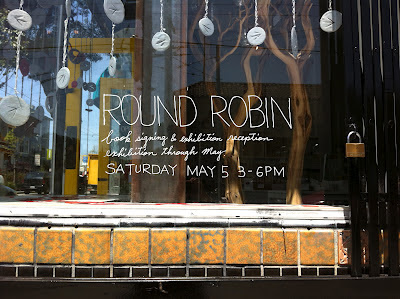 ROUND ROBIN
book signing & exhibition reception
exhibition through May
SATURDAY MAY 5 3-6PM